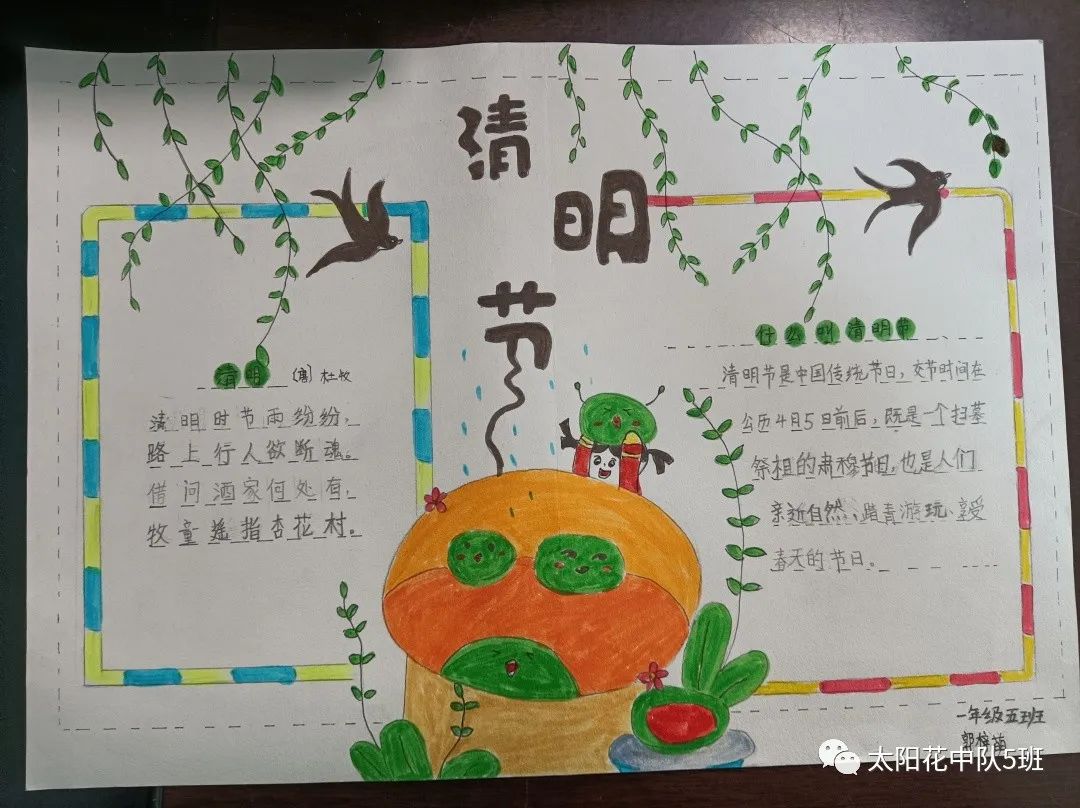 清明节
清明 (唐) 杜牧
清明时节雨纷纷，
路上行人欲断魂。
借问酒家何处有，
牧童遥指杏花村。
什么叫清明节
清明节是中国传统节日，交节时间在
公历4月5日前后，既是一个扫墓
祭祖的肃穆节日，也是人们
亲近自然、踏青游玩、享受
春天的节日。
一年级五班
郭梓苗
太阳花中队5班